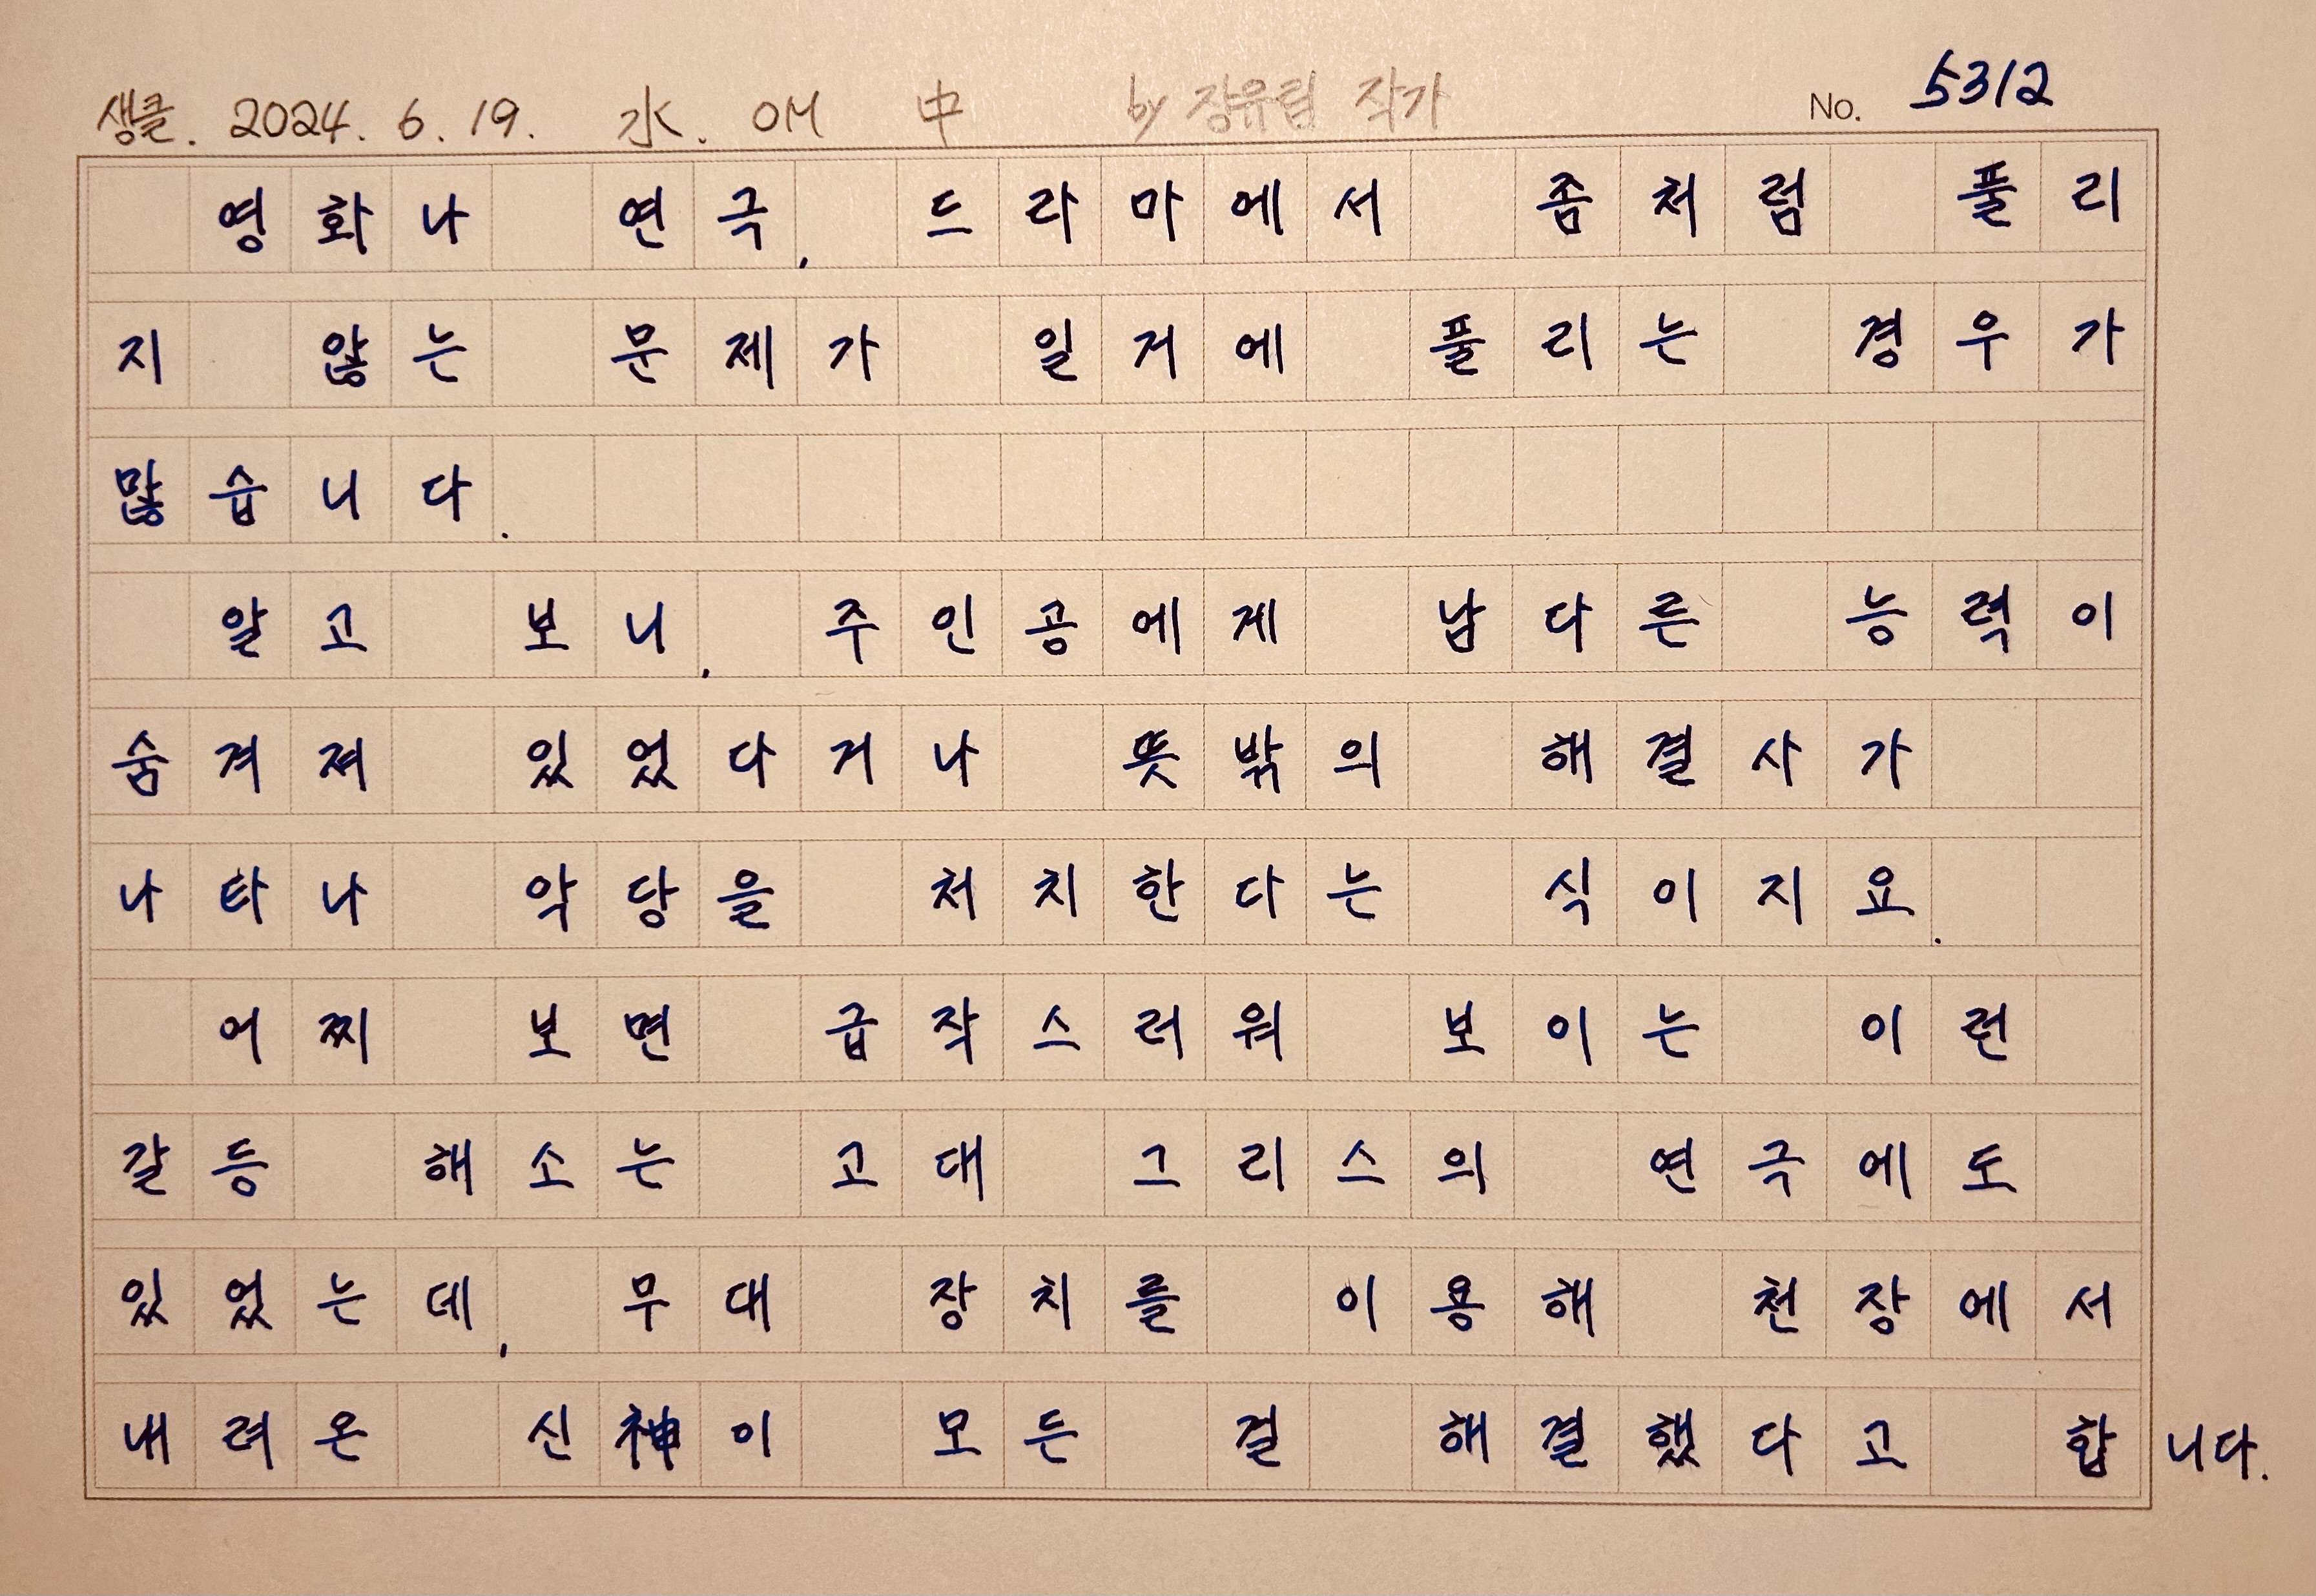 생클. 2024. 6. 19. 水. OM 中 by 장유림 작가 No. 5312
영화나 연극, 드라마에서 좀처럼 풀리
지 않는 문제가 일거에 풀리는 경우가
많습니다.
알고 보니, 주인공에게 남다른 능력이
숨겨져 있었다거나 뜻밖의 해결사가
나타나 악당을 처치한다는 식이지요.
어찌 보면 급작스러워 보이는 이런
갈등 해소는 고대 그리스의 연극에도
있었는데, 무대 장치를 이용해 천장에서
내려온 신神이 모든 걸 해결했다고 합니다.